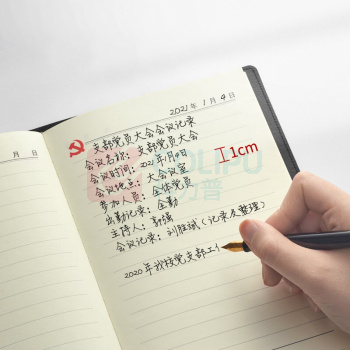 月 日
2021年1月4日
支部党员大会会议记录
会议名称：支部党员大会
会议时间：2021年1月4日
会议地点：大会议室
参加人员：全体党员
出勤记录：全勤
主持人：郭强
会议记录：刘胜斌（记录及整理）
2020年我校党支部工作
1cm